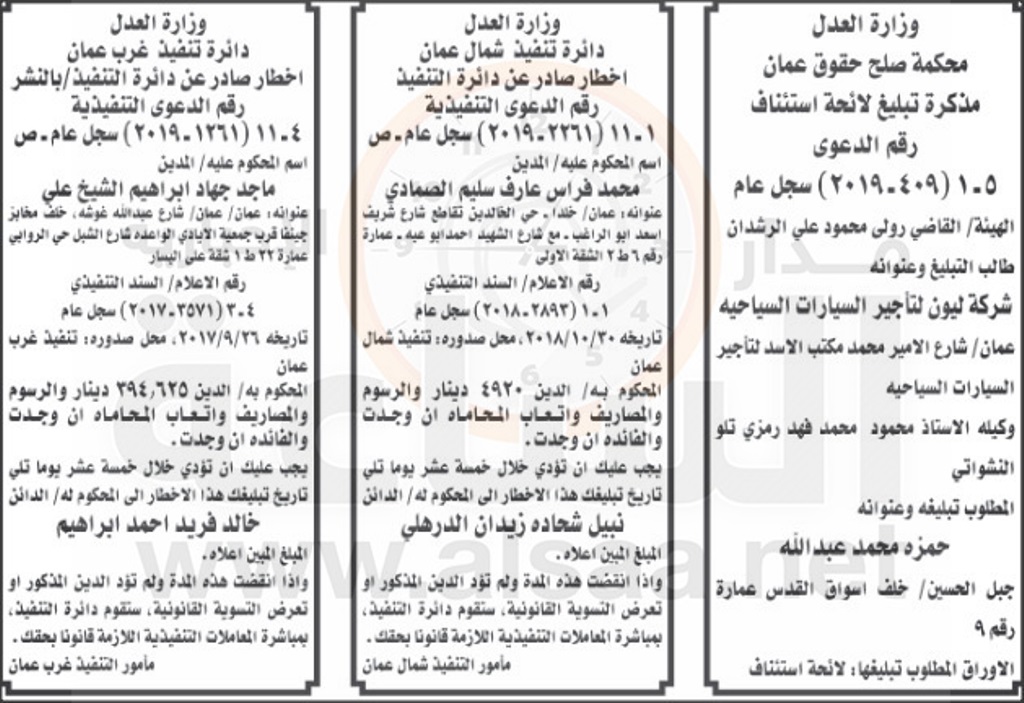 وزارة العدل
محكمة صلح حقوق عمان
مذكرة تبليغ لائحة استئناف
رقم الدعوى
٥-١ (٤٠٩-٢٠١٩) سجل عام
الهيئة/ القاضي رولى محمود علي الرشدان
طالب التبليغ وعنوانه
شركة ليون لتأجير السيارات السياحيه
عمان/ شارع الامير محمد مكتب الاسد لتأجير
السيارات السياحيه
وكيله الاستاذ محمود محمد فهد رمزي تلو
النشواتي
المطلوب تبليغه وعنوانه
حمزه محمد عبدالله
جبل الحسين/ خلف اسواق القدس عمارة
رقم ٩
الاوراق المطلوب تبليغها: لائحة استئناف
وزارة العدل
دائرة تنفيذ شمال عمان
اخطار صادر عن دائرة التنفيذ
رقم الدعوى التنفيذية
١-١١ (٢٢٦١-٢٠١٩) سجل عام-ص
اسم المحكوم عليه/ المدين
محمد فراس عارف سليم الصمادي
عنوانه: عمان/ خلدا - حي الخالدين تقاطع شارع شريف
اسعد ابو الراغب - مع شارع الشهيد احمدابو عيه - عمارة
رقم ٦ ط ٢ الشقة الاولى
رقم الاعلام/ السند التنفيذي
١-١ (٢٨٩٣-٢٠١٨) سجل عام
تاريخه ٢٠١٨/١٠/٣٠، محل صدوره: تنفيذ شمال
عمان
المحكوم به/ الدين ٤٩٢٠ دينار والرسوم
والمصاريف واتعاب المحاماه ان وجدت
والفائده ان وجدت.
يجب عليك ان تؤدي خلال خمسة عشر يوما تلي
تاريخ تبليغك هذا الاخطار الى المحكوم له/ الدائن
نبيل شحاده زيدان الدرهلي
المبلغ المبين اعلاه.
واذا انقضت هذه المدة ولم تؤد الدين المذكور او
تعرض التسوية القانونية، ستقوم دائرة التنفيذ،
بمباشرة المعاملات التنفيذية اللازمة قانونا بحقك.
مأمور التنفيذ شمال عمان
وزارة العدل
دائرة تنفيذ غرب عمان
اخطار صادر عن دائرة التنفيذ/بالنشر
رقم الدعوى التنفيذية
٤-١١ (١٢٦١-٢٠١٩) سجل عام-ص
اسم المحكوم عليه/ المدين
ماجد جهاد ابراهيم الشيخ علي
عنوانه: عمان/ عمان/ شارع عبدالله غوشه، خلف مخابز
جينفا قرب جمعية الايادي الواعده شارع الشبل حي الروابي
عمارة ٢٢ ط ١ شقة على اليسار
رقم الاعلام/ السند التنفيذي
٤-٣ (٣٥٧١-٢٠١٧) سجل عام
تاريخه ٢٠١٧/٩/٢٦، محل صدوره: تنفيذ غرب
عمان
المحكوم به/ الدين ٣٩٤,٦٢٥ دينار والرسوم
والمصاريف واتعاب المحاماه ان وجدت
والفائده ان وجدت.
يجب عليك ان تؤدي خلال خمسة عشر يوما تلي
تاريخ تبليغك هذا الاخطار الى المحكوم له/ الدائن
خالد فريد احمد ابراهيم
المبلغ المبين اعلاه.
واذا انقضت هذه المدة ولم تؤد الدين المذكور او
تعرض التسوية القانونية، ستقوم دائرة التنفيذ،
بمباشرة المعاملات التنفيذية اللازمة قانونا بحقك.
مأمور التنفيذ غرب عمان
مدار الساعة الإخبارية
www.alsaa.net